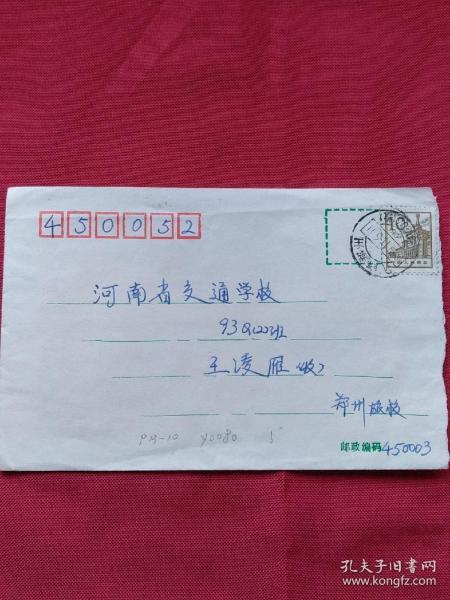 450052
河南省交通学校
王凌雁(收)
郑州旅校
邮政编码450003
PM-10 y0080 5
孔夫子旧书网
www.kongfz.com